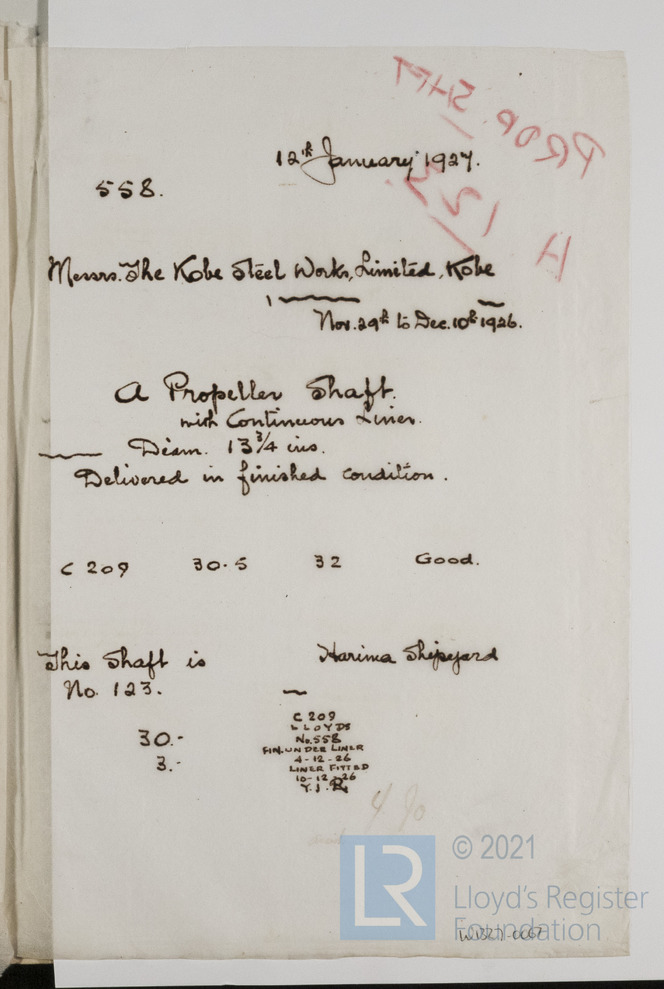 PROP SHAFT
H 123
12th January 1927.
558.
Messrs. The Kobe Steel Works, Limited, Kobe
Nov. 29th to Dec. 10th 1926.
A Propeller Shaft.
with Continuous Liner.
Diam. 13 3/4 ins.
Delivered in finished condition.
C 209 30.5 32 Good.
This shaft is Harima Shipyard
No. 123.
30.-
3.-
C 209
LLOYDS
No. 558
FIN. UNDER LINER
4-12-26
LINER FITTED
10-12-26
Y.J.R
© 2021
LR
Lloyd's Register
Foundation